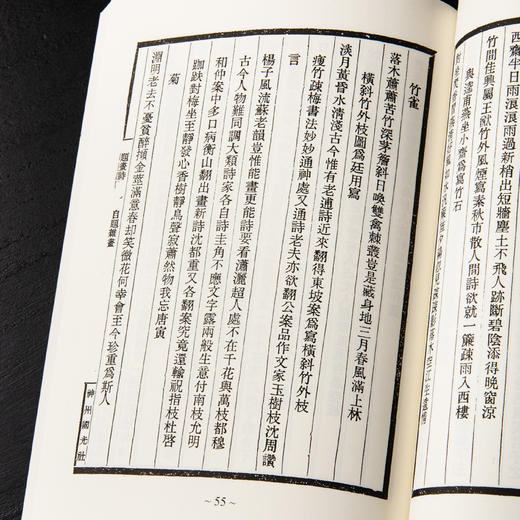 西齋半日雨浪浪雨過新梢出短牆塵土不飛人跡斷碧陰添得晚窗涼
竹間佳興屬王猷竹外風煙寫素秋市散人間詩欲就一簾疎雨入西樓
與逵甫燕坐小齋爲寫竹石
竹雀
落木蕭蕭苦竹深茅簷斜日喚雙禽棘叢豈是藏身地三月春風滿上林
橫斜竹外枝圖爲廷用寫
淡月黃昏水清淺古今惟有老逋詩近來翻得東坡案爲寫橫斜竹外枝
瘦竹疎梅書法妙妙通神處又通詩老夫亦欲翻公案品作文家玉樹枝沈周讚
言
楊子風流蘇老韻豈惟能畫更能詩要看瀟灑超人處不在千花與萬枝都穆
古今人物難同調大類詩家各自詩圭角不應文字露兩般生意付南枝允明
和仲案中多口病衡山翻出畫新詩沈都重又各翻案究竟還輸祝指枝杜啓
跏趺對梅坐至靜發心香樹靜鳥聲寂蕭然物我忘唐寅
菊
淵明老去不憂貧醉擷金荳滿意春却笑微花何幸會至今珍重爲斯人
題畫詩 自題雜畫
神州國光社
~55~